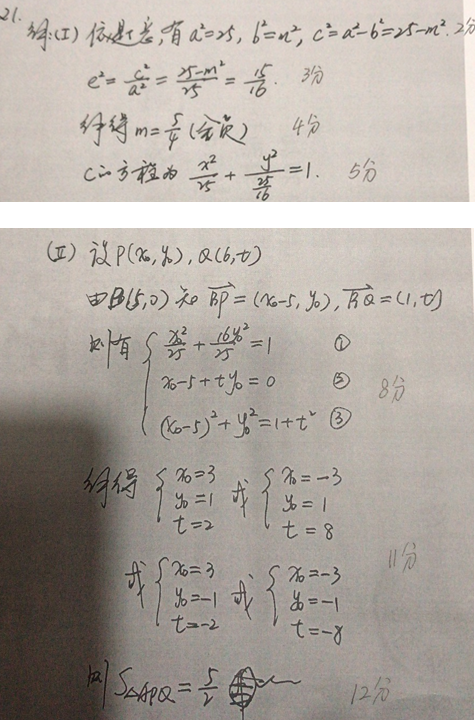 21.
解:(I) 依题意,有 a²=25, b²=m², c²=a²-b²=25-m². 2分
e²= c²/a² = (25-m²)/25 = 15/16. 3分
解得 m=5/4 (舍负) 4分
C的方程为 x²/25 + y²/(25/16) =1. 5分
(II) 设P(x₀,y₀), Q(6,t)
由B(5,0) 知 BP→=(x₀-5, y₀), BQ→=(1,t)
则有 { x₀²/25 + 16y₀²/25 =1 ①
x₀-5+ty₀=0 ②
(x₀-5)²+y₀²=1+t² ③ 8分
解得 { x₀=3 y₀=1 t=2 或 { x₀=-3 y₀=1 t=8
或 { x₀=3 y₀=-1 t=-2 或 { x₀=-3 y₀=-1 t=-8 11分
则 S△APQ = 5/2 12分